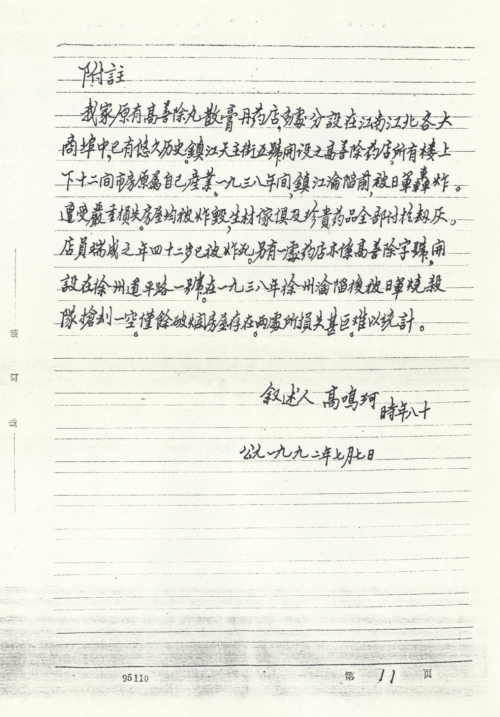 附註
我家原有高善除丸散膏丹药店,多處分設在江南江北各大
商埠中,已有悠久历史。鎮江天主街五號開設之高善除药店,所有楼上
下十二间市房原為自己產業。一九三八年间,鎮江淪陷前,被日軍轟炸。
遭受嚴重損失。房屋均被炸毁,生材傢俱及珍貴药品全部付於劫灰。
店員瑞成之年四十二岁已被炸死。另有一處药店亦係高善除字號,開
設在徐州道平路一號。在一九三八年徐州淪陷後被日軍燒殺
隊搶刦一空,僅餘破烟房屋存在。两處所損失甚巨。难以統計。
叙述人 高鸣珂
時年八十
公元一九九二年七月七日
95110
第 11 页